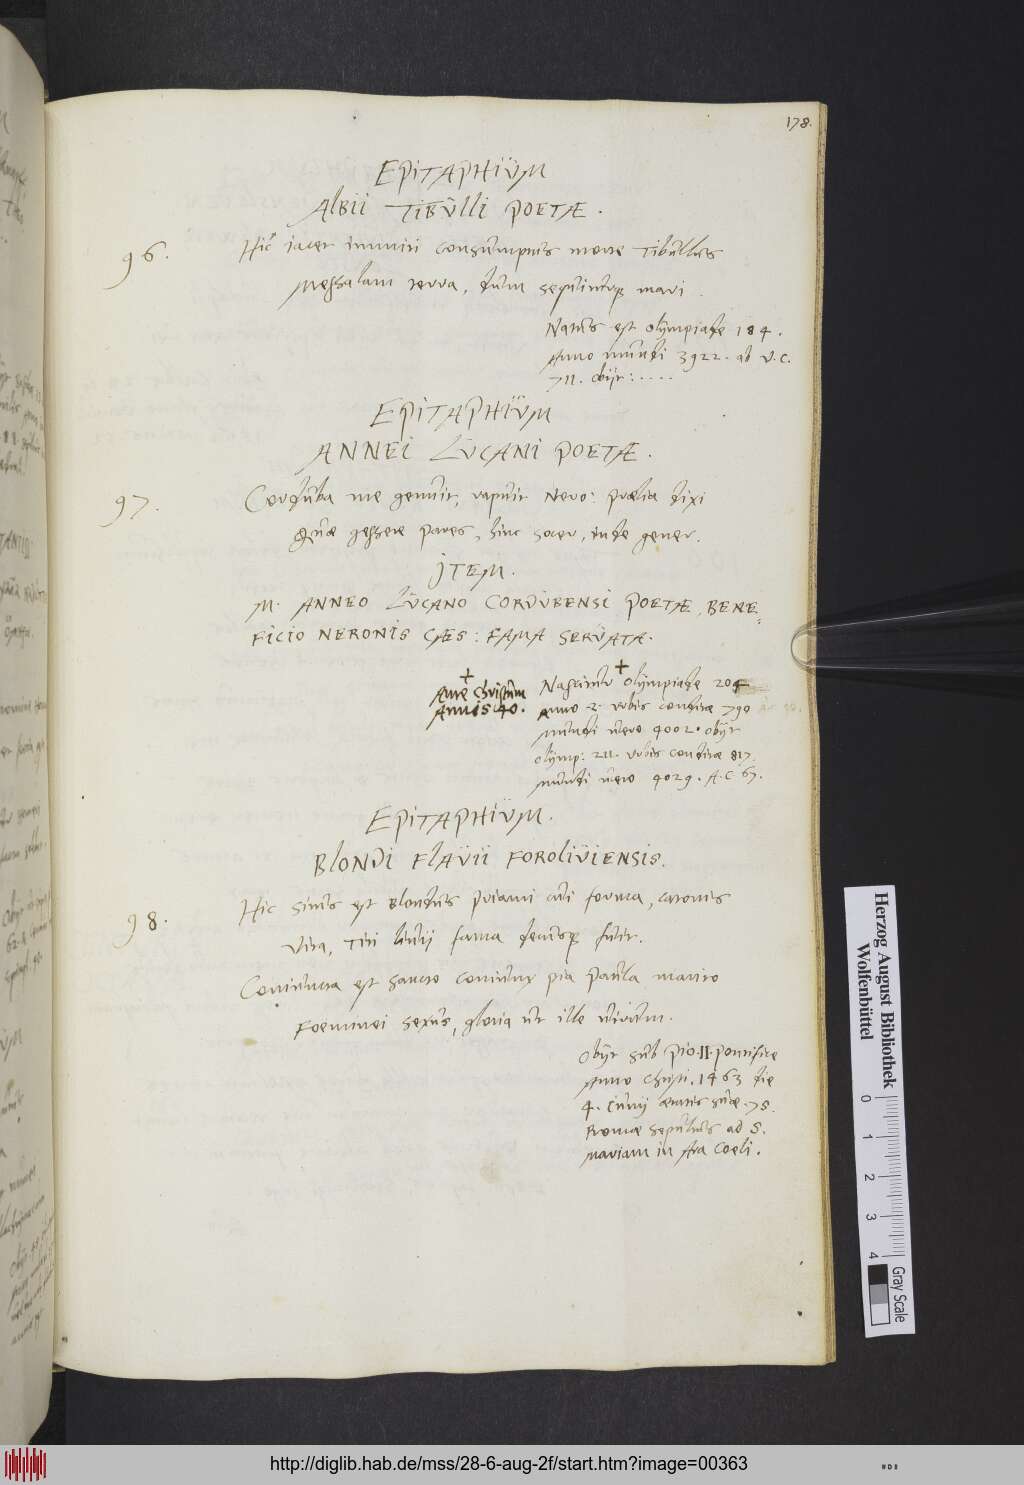 178.
EPITAPHIUM
ALBII TIBULLI POETÆ.
96.
Hic iacet immiti consumptus morte Tibullus
Messalam terra, dum sequiturq; mari.
Natus est Olympiade 184.
Anno mundi 3922. ab V.C.
711. obijt: ....
EPITAPHIUM
ANNEI LUCANI POETÆ.
97.
Corduba me genuit, rapuit Nero: prælia dixi
Quæ gessere pares, hinc socer, inde gener.
ITEM.
M. ANNEO LUCANO CORDUBENSI POETÆ, BENE
FICIO NERONIS CÆS: FAMA SERVATA.
+ Ante Christum
Annis 40.
Nascitur + Olympiade 204
Anno 2. Urbis conditæ 790
mundi vero 4002. obijt
Olymp: 211. Urbis conditæ 817.
mundi vero 4029. A.C 67.
EPITAPHIUM.
BLONDI FLAVII FOROLIVIENSIS.
98.
Hic situs est Blondus Priami cui forma, Catonis
Vita, Titi Livij fama decusq; fuit.
Coniuncta est sancto coniunx pia Paula marito
Foeminei sexus, gloria ut ille virum.
Obijt sub Pio.II. Pontifice
Anno Christi. 1463 die
4. Iunij ætatis suæ. 75.
Romæ sepultus ad S.
Mariam in Ara Coeli.
Herzog August Bibliothek
Wolfenbüttel
0 1 2 3 4
Gray Scale
http://diglib.hab.de/mss/28-6-aug-2f/start.htm?image=00363